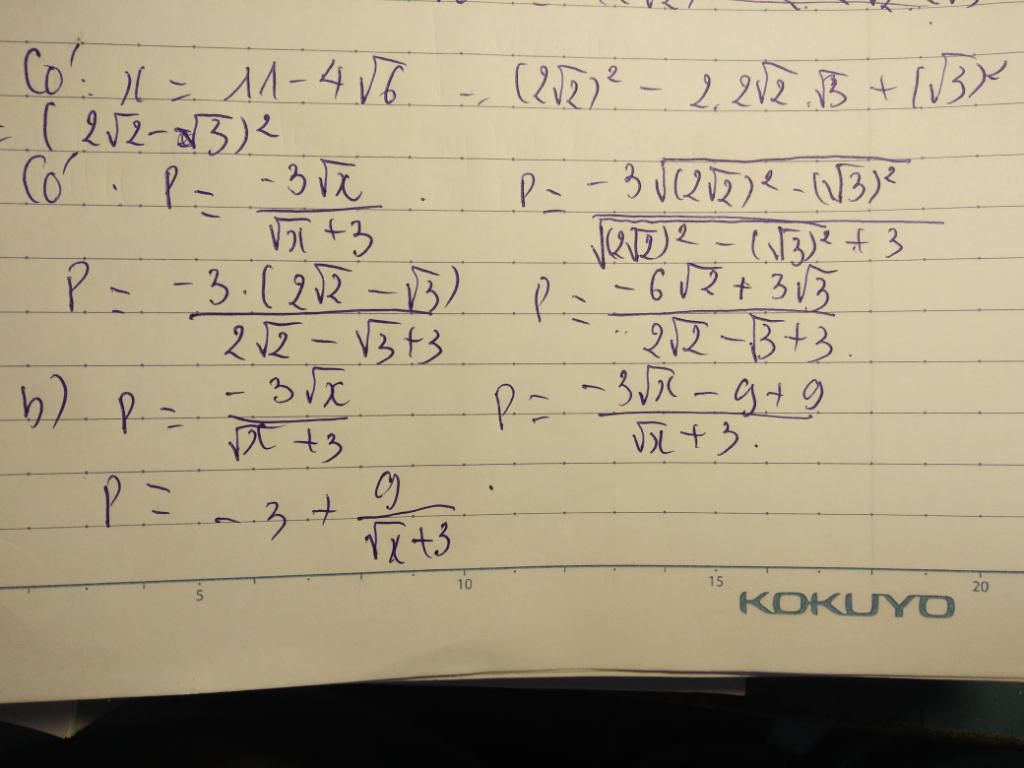 Có: x = 11 - 4√6 = (2√2)² - 2.2√2.√3 + (√3)²
= (2√2 - √3)²
Có: P = -3√x / √x + 3 . P = -3√(2√2)² - (√3)² / √(2√2)² - (√3)² + 3
P = -3.(2√2 - √3) / 2√2 - √3 + 3 P = -6√2 + 3√3 / 2√2 - √3 + 3.
b) P = -3√x / √x + 3 P = -3√x - 9 + 9 / √x + 3.
P = -3 + 9 / √x + 3 .
5 10 15 20
KOKUYO